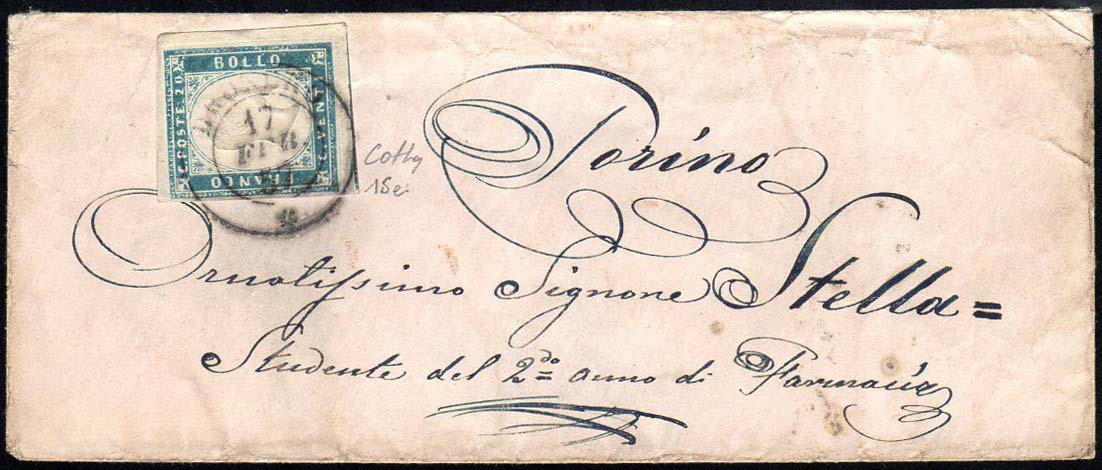 BOLLO
C. POSTE 20
C. VENTI
FRANCO
17
FEB
57
Cottq
15e
Torino
Ornatissimo Signore Stella=
Studente del 2do anno di Farmacia